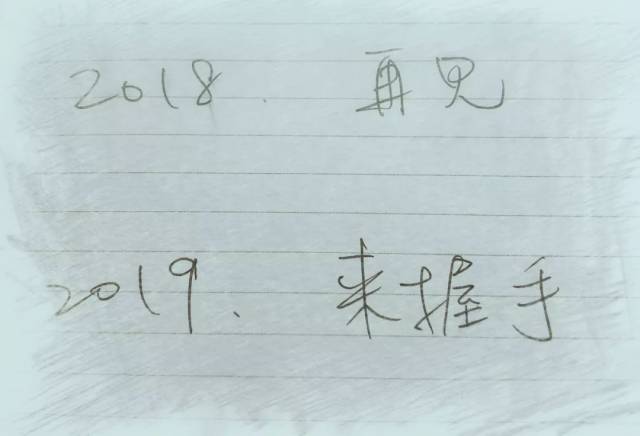 2018. 再见
2019. 来握手